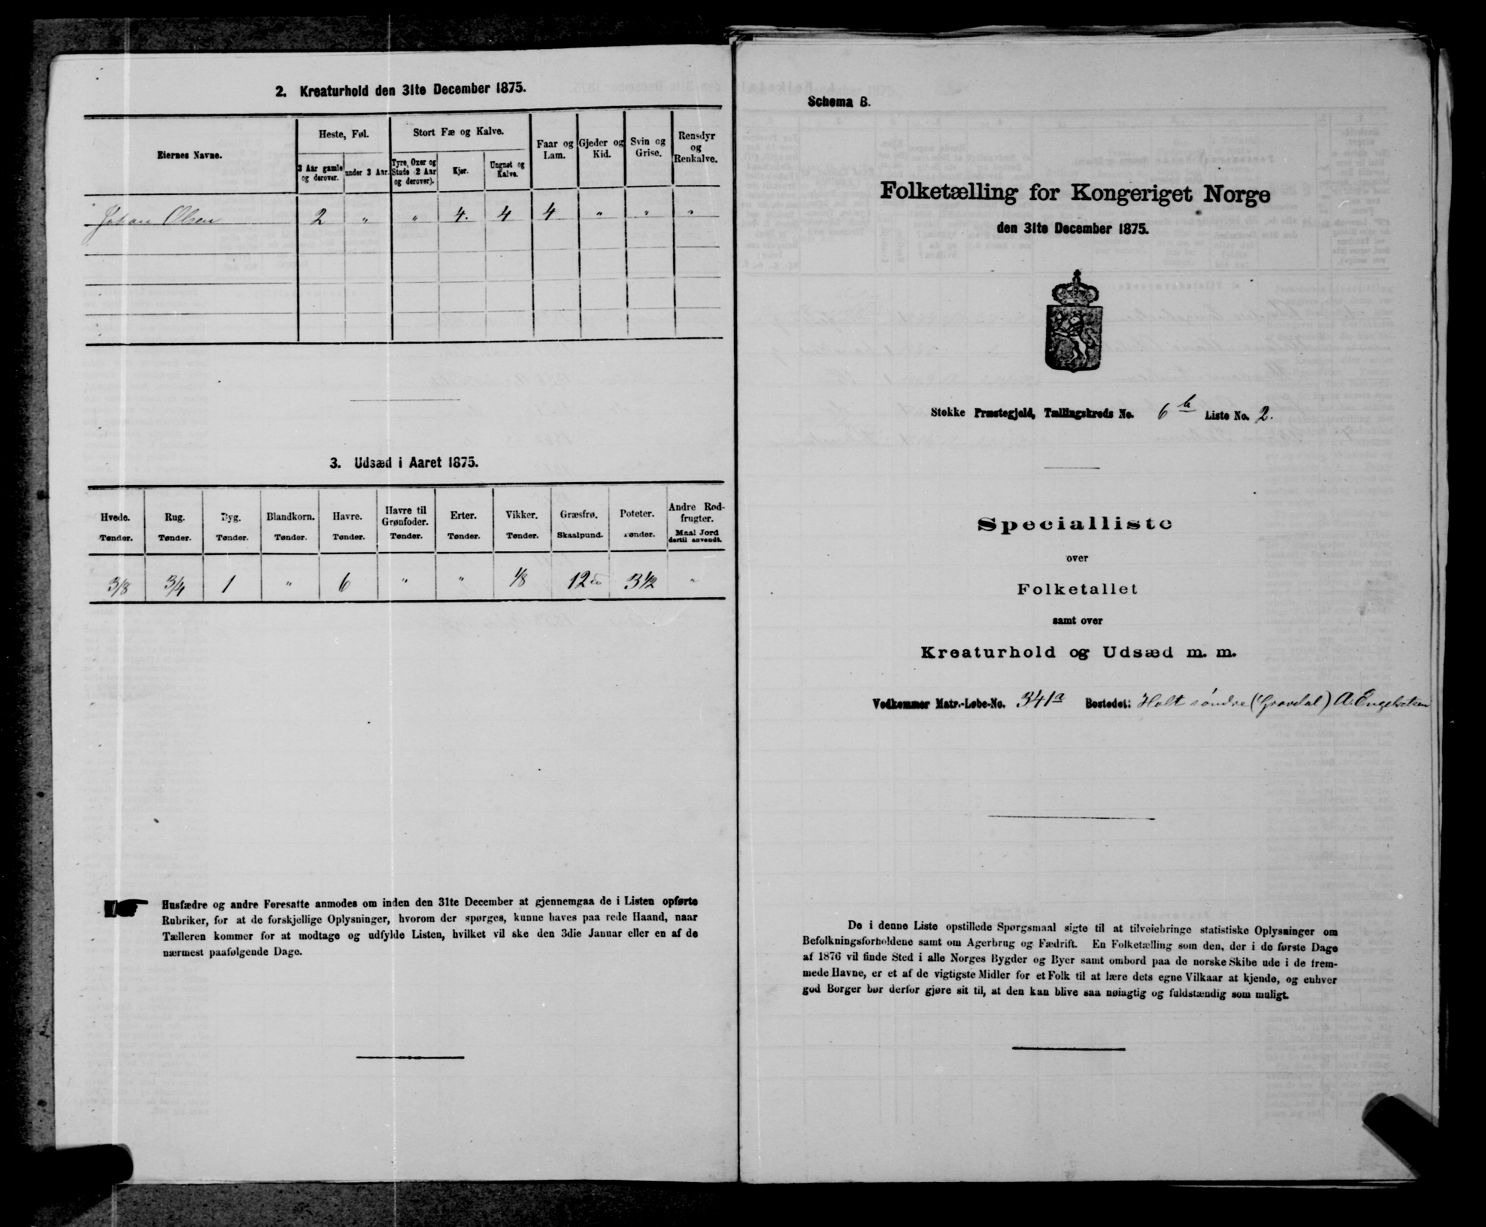 2. Kreaturhold den 31te December 1875.
Eiernes Navne.
Heste, Føl.
Stort Fæ og Kalve.
Faar og Lam.
Gjeder og Kid.
Svin og Grise.
Rensdyr og Renkalve.
3 Aar gamle og derover.
under 3 Aar.
Tyre, Oxer og Stude (2 Aar og derover).
Kjør.
Ungnøt og Kalve.
Johan Olsen 2 " " 4. 4 4 " " "
3. Udsæd i Aaret 1875.
Hvede. Rug. Byg. Blandkorn. Havre. Havre til Grønfoder. Erter. Vikker. Græsfrø. Poteter. Andre Rodfrugter.
Tønder. Tønder. Tønder. Tønder. Tønder. Tønder. Tønder. Tønder. Skaalpund. Tønder. Maal Jord dertil anvendt.
3/8 3/4 1 " 6 " " 1/8 12 3 1/2 "
Husfædre og andre Foresatte anmodes om inden den 31te December at gjennemgaa de i Listen opførte
Rubriker, for at de forskjellige Oplysninger, hvorom der spørges, kunne haves paa rede Haand, naar
Tælleren kommer for at modtage og udfylde Listen, hvilket vil ske den 3die Januar eller en af de
nærmest paafølgende Dage.
Schema B.
Folketælling for Kongeriget Norge
den 31te December 1875.
Stokke Præstegjeld, Tællingskreds No. 6 b Liste No. 2.
Specialliste
over
Folketallet
samt over
Kreaturhold og Udsæd m. m.
Vedkommer Matr.-Løbe-No. 341a Bostedet: Holt søndre (Grovdal) A. Engebretsen
De i denne Liste opstillede Spørgsmaal sigte til at tilveiebringe statistiske Oplysninger om
Befolkningsforholdene samt om Agerbrug og Fædrift. En Folketælling som den, der i de første Dage
af 1876 vil finde Sted i alle Norges Bygder og Byer samt ombord paa de norske Skibe ude i de frem-
mede Havne, er et af de vigtigste Midler for et Folk til at lære dets egne Vilkaar at kjende, og enhver
god Borger bør derfor gjøre sit til, at den kan blive saa nøiagtig og fuldstændig som muligt.